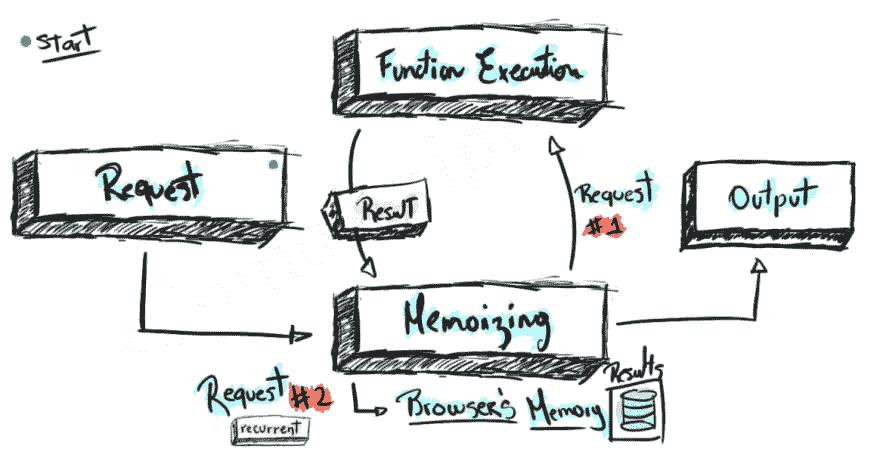 Start
Function Execution
Request
Result
Request
#1
Output
Memoizing
Results
Request #2
recurrent
Browser's Memory